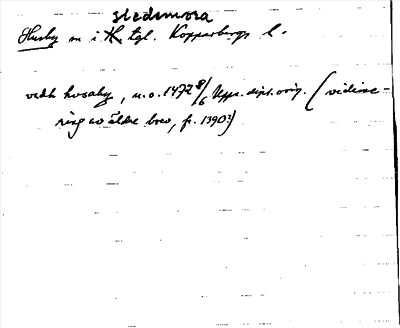 stedsmora
Husby sn i K tgl. Kopparbergs l.
vidh husaby, u.o. 1472 8/6 Uppl. dipl. orig. (vidime-
ring av äldre brev, f. 1390?)